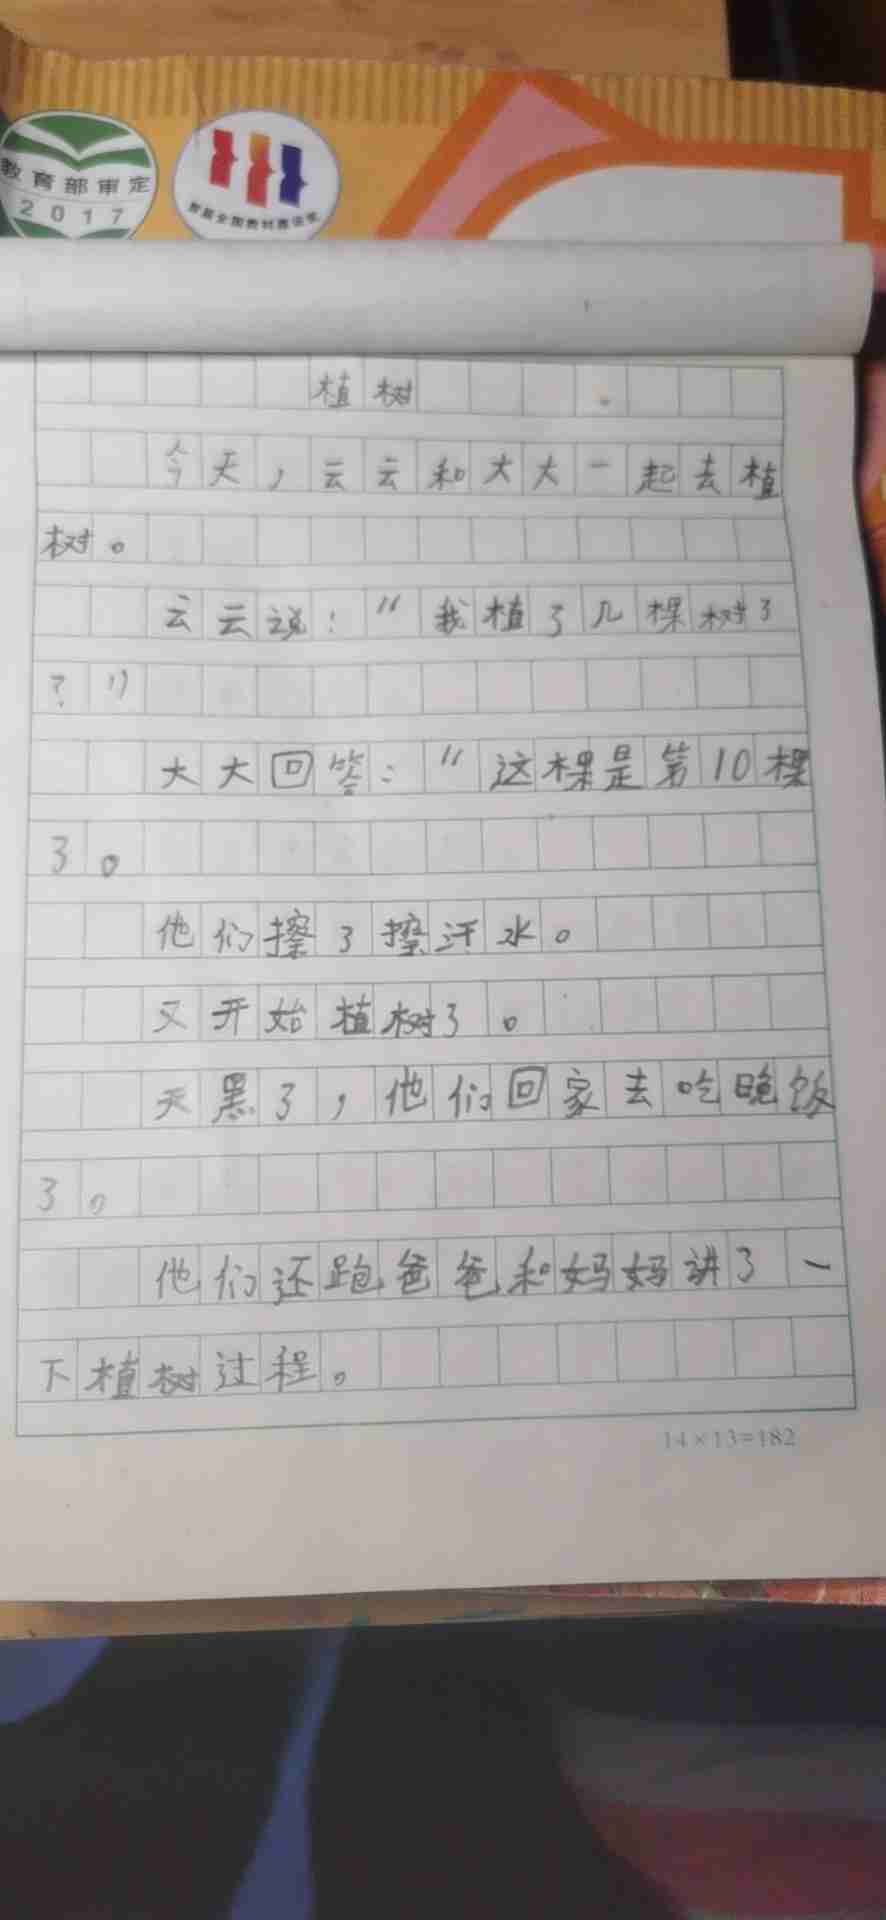 教育部审定
2017
首届全国教材建设奖
植树
今天，云云和大大一起去植
树。
云云说：“我植了几棵树了
？”
大大回答：“这棵是第10棵
了。
他们擦了擦汗水。
又开始植树了。
天黑了，他们回家去吃晚饭
了。
他们还跑爸爸和妈妈讲了一
下植树过程。
14×13=182